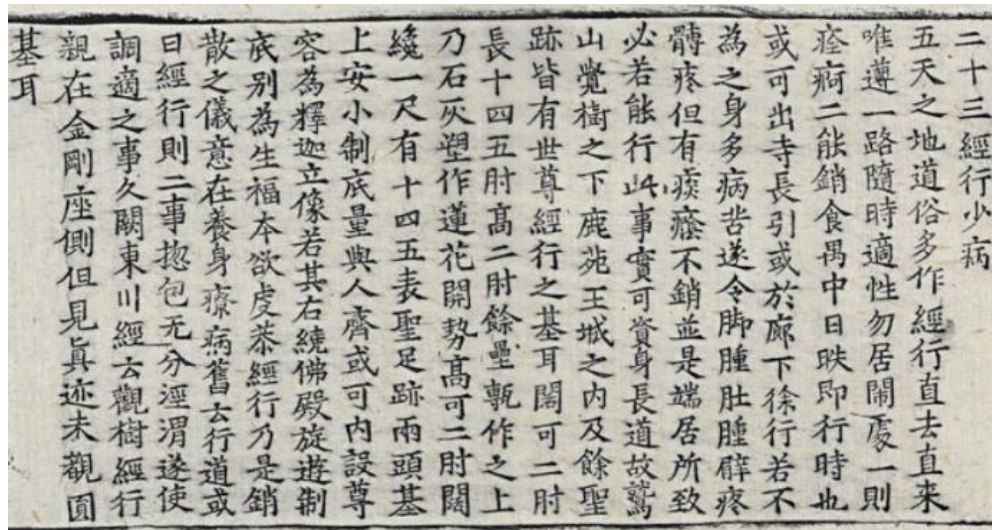 二十三經行少病
五天之地道俗多作經行直去直來
唯遵一路隨時適性勿居閙處一則
痊痾二能銷食禺中日昳即行時也
或可出寺長引或於廊下徐行若不
為之身多病苦遂令脚腫肚腫臂疼
髆疼但有痰癊不銷並是端居所致
必若能行此事實可資身長道故鷲
山覺樹之下鹿苑王城之內及餘聖
跡皆有世尊經行之基耳闊可二肘
長十四五肘髙二肘餘壘甎作之上
乃石灰塑作蓮花開勢髙可二肘闊
纔一尺有十四五表聖足跡兩頭基
上安小制底量與人齊或可內設尊
容為釋迦立像若其右繞佛殿旋遊制
底別為生福本欲虔恭經行乃是銷
散之儀意在養身療病舊云行道或
曰經行則二事揔包无分涇渭遂使
調適之事久闕東川經云觀樹經行
親在金剛座側但見真迹未觀圓
基耳